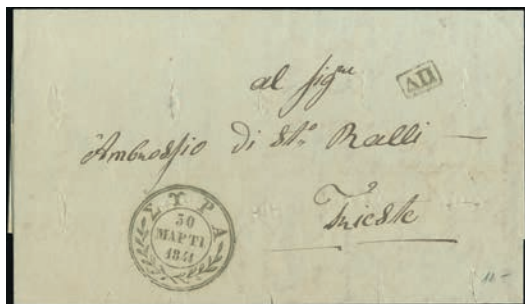 al Sig.re
ΔΠ
Ambrossio di St.o Ralli
Trieste
ΣΥΡΑ
30
ΜΑΡΤΙ
1841